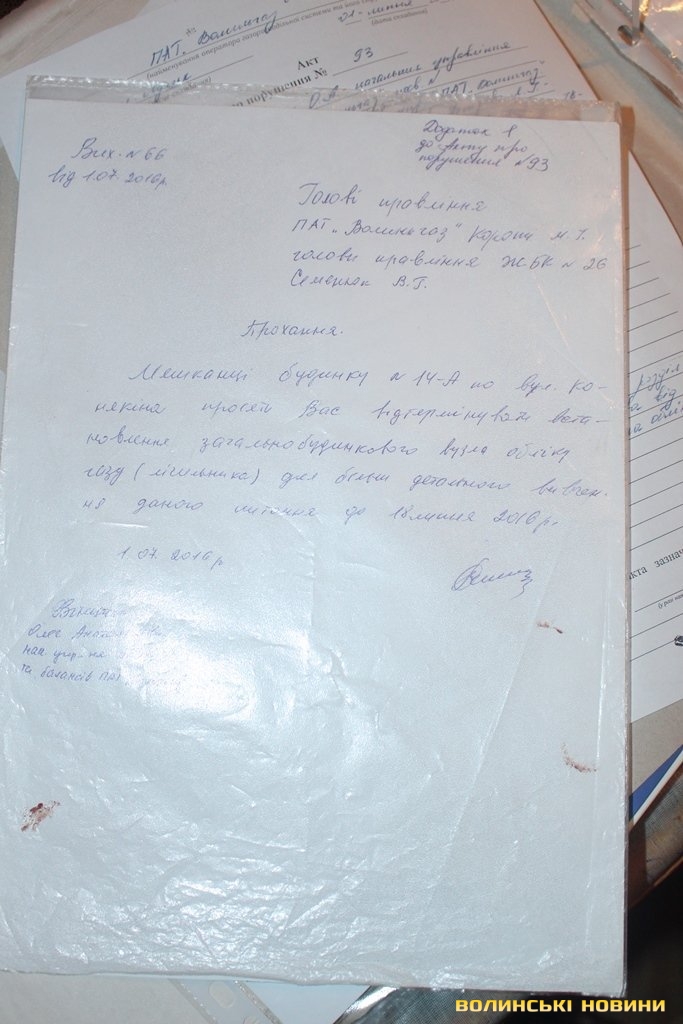 ПАТ. Волиньгаз
(найменування оператора газорозподільної системи
21 липня
(дата складання)
Акт
порушення № 93
начальник управління
ПАТ. Волиньгаз
Додаток 1
до Акту про
порушення №93
Вих. №66
від 1.07.2016р.
Голові правління
ПАТ „Волиньгаз"
голови правління ЖБК №26
Семенюк В.Г.
Прохання.
Мешканці будинку №14-А по вул. Ко-
някіна просять Вас відтермінувати вста-
новлення загальнобудинкового вузла обліку
газу (лічильника) для більш детального вивчен-
ня даного питання до 18 липня 2016р.
1.07.2016р
Олег
та балансів ПАТ
розділ
від
кта зазнач
ВОЛИНСЬКІ НОВИНИ